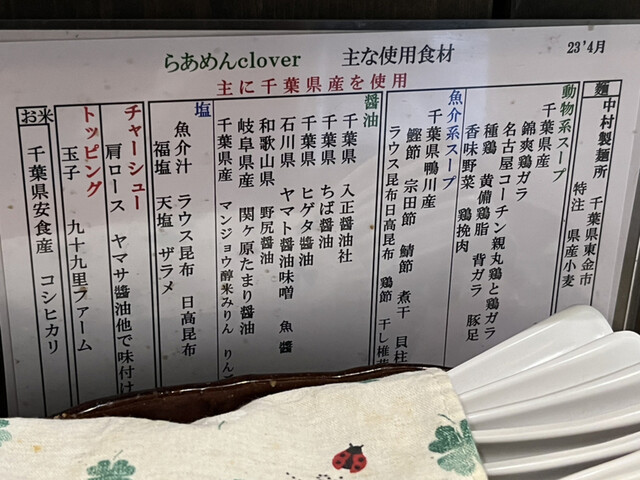 らあめんclover　主な使用食材
23'4月
主に千葉県産を使用
麺
中村製麺所　千葉県東金市
特注　県産小麦
動物系スープ
千葉県産
錦爽鶏ガラ
名古屋コーチン親丸鶏と鶏ガラ
種鶏　黄備鶏脂　背ガラ　豚足
香味野菜　鶏挽肉
魚介系スープ
千葉県鴨川産
鰹節　宗田節　鯖節　煮干　貝柱
ラウス昆布日高昆布　鶏節　干し椎茸
醤油
千葉県　入正醤油社
千葉県　ちば醤油
千葉県　ヒゲタ醤油
石川県　ヤマト醤油味噌　魚醬
和歌山県　野尻醤油
岐阜県産　関ヶ原たまり醤油
千葉県産　マンジョウ醇米みりん　りん
塩
魚介汁　ラウス昆布　日高昆布
福塩　天塩　ザラメ
チャーシュー
肩ロース　ヤマサ醤油他で味付け
トッピング
玉子　九十九里ファーム
お米
千葉県安食産　コシヒカリ